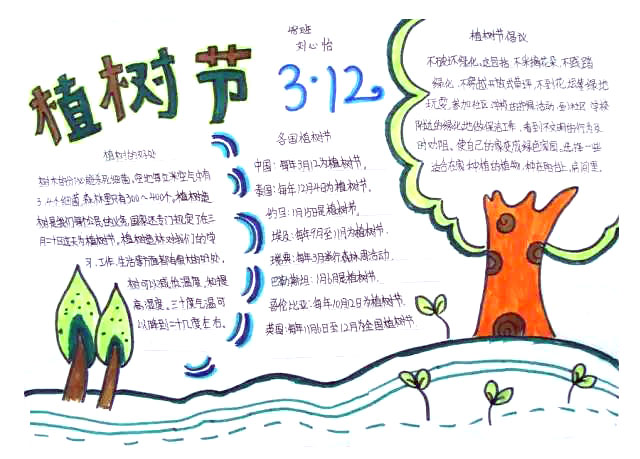 植树节
班
刘心怡
3·12
植树的好处
树木的分泌能杀死细菌,空地每立米空气中有
3.4个细菌,森林里只有300~400个,植树造
树是我们每个公民的义务,国家还专门规定了在三
月十二日这天为植树节,植树造林对我们的学
习、工作、生活等方面都有着大的好处,
树可以减低温度,和提
高湿度。三十度气温可
以降到二十几度左右。
各国植树节
中国:每年3月12为植树节,
泰国:每年12月4日为植树节,
约旦:1月15日是植树节.
埃及:每年9月至11月为植树节.
瑞典:每年3月举行森林周活动.
巴勒斯坦:1月6日是植树节.
哥伦比亚:每年10月2日为植树节.
英国:每年11月6日至12月为全国植树节.
植树节倡议
不破坏绿化,这包括不采摘花朵,不践踏
绿化,不得越开放式草坪,不到花坛等绿地
玩耍,参加社区、学校的护绿活动,在社区、学校
附近的绿化地做保洁工作,看到不文明的行为及
时劝阻,使自己的家变成绿色家园,选择一些
适合在家种植的植物,种在阳台上,房间里。